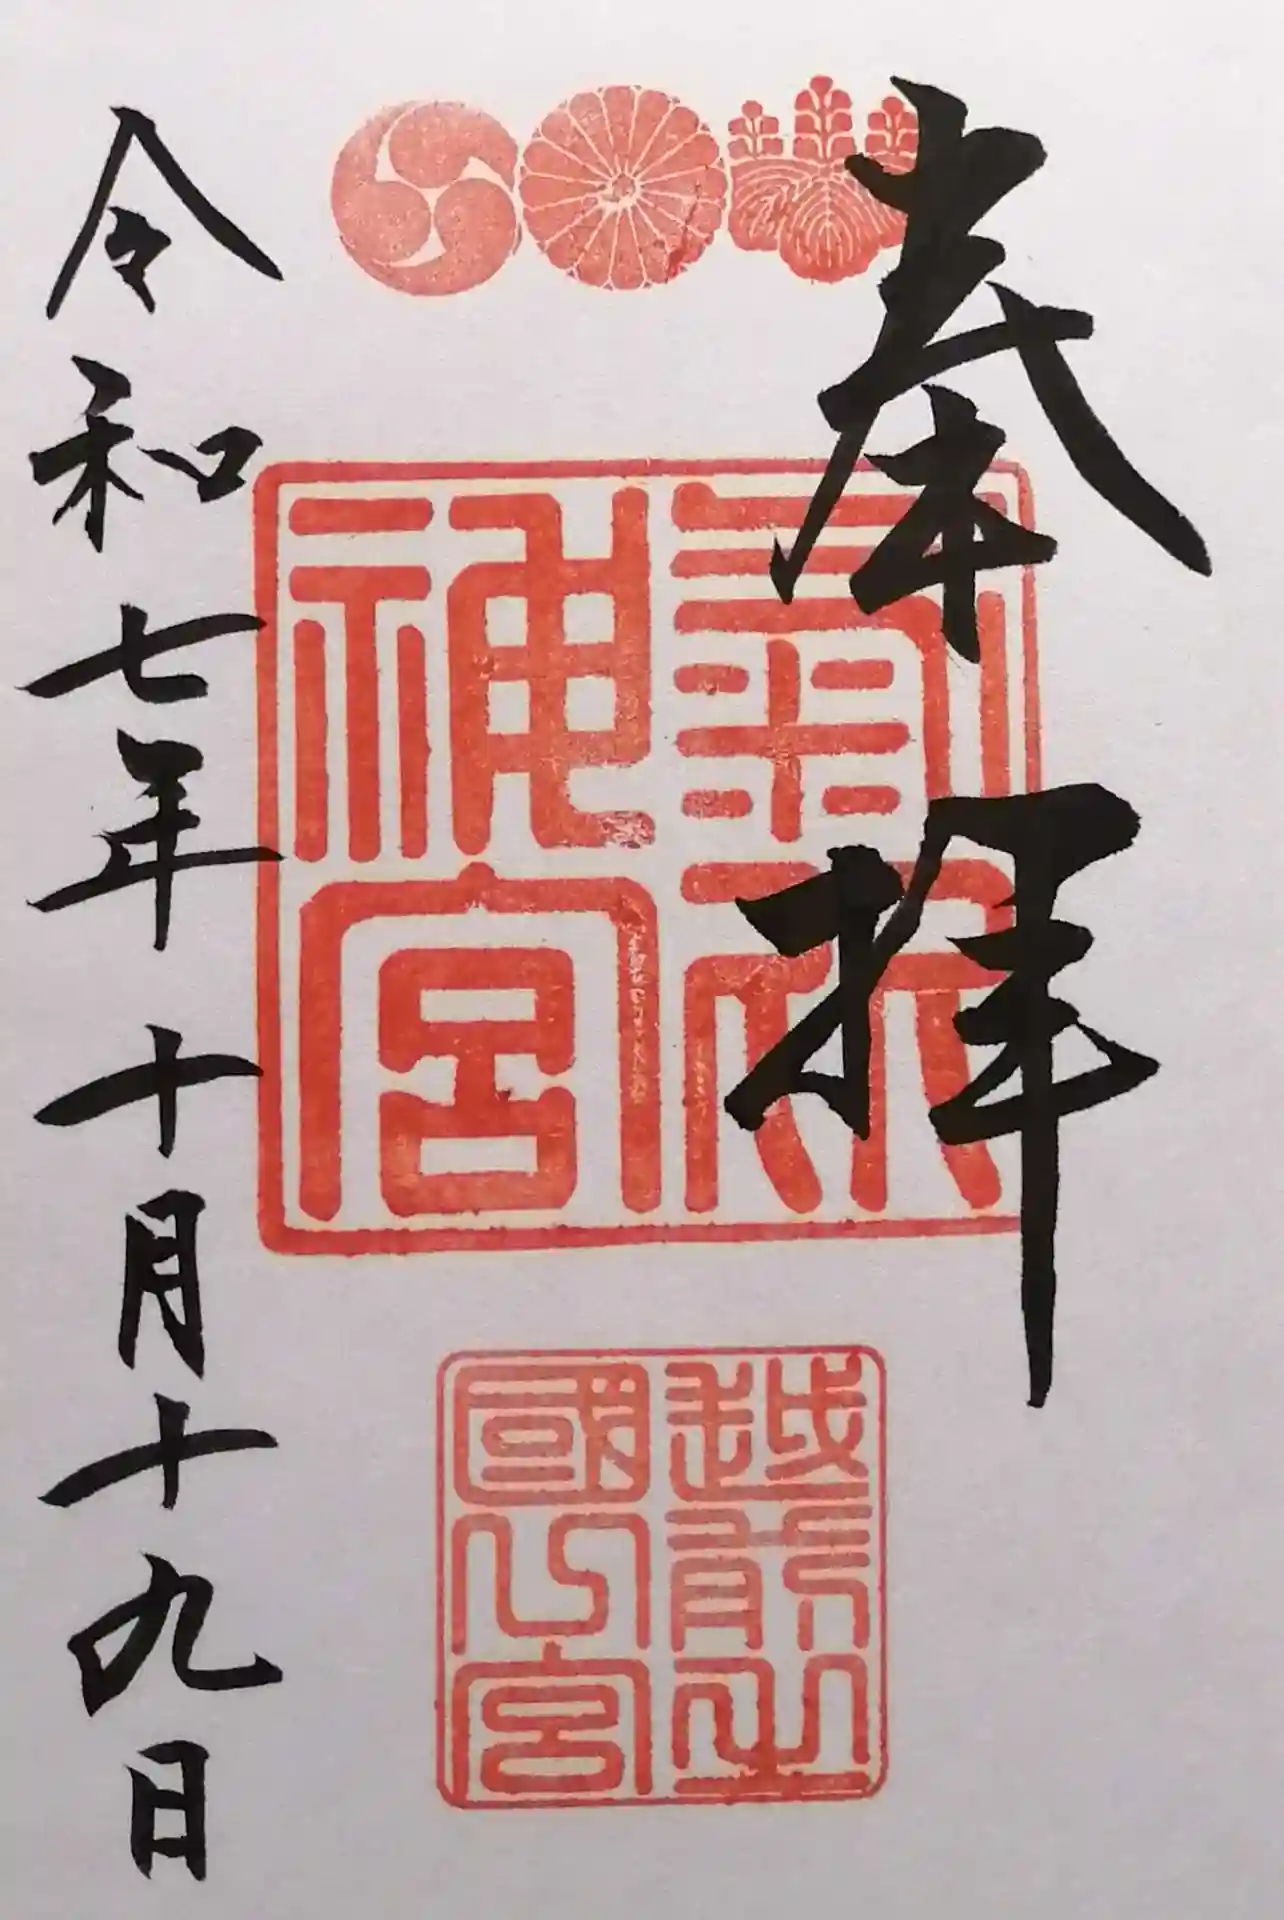 奉拝
氣比神宮
越前之國一宮
令和七年十月十九日